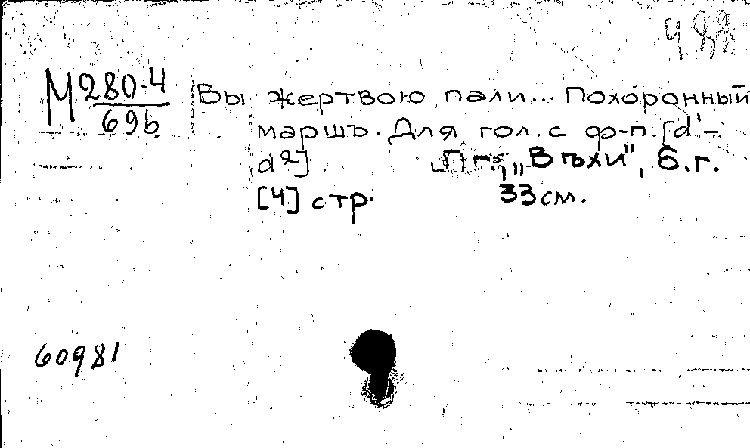 М 280-4 Вы жертвою пали... Похоронный
69b маршъ. Для гол. с ф-п. [d'-
d2] Пг., „Вѣхи", б.г.
[4] стр. 33 см.
60981